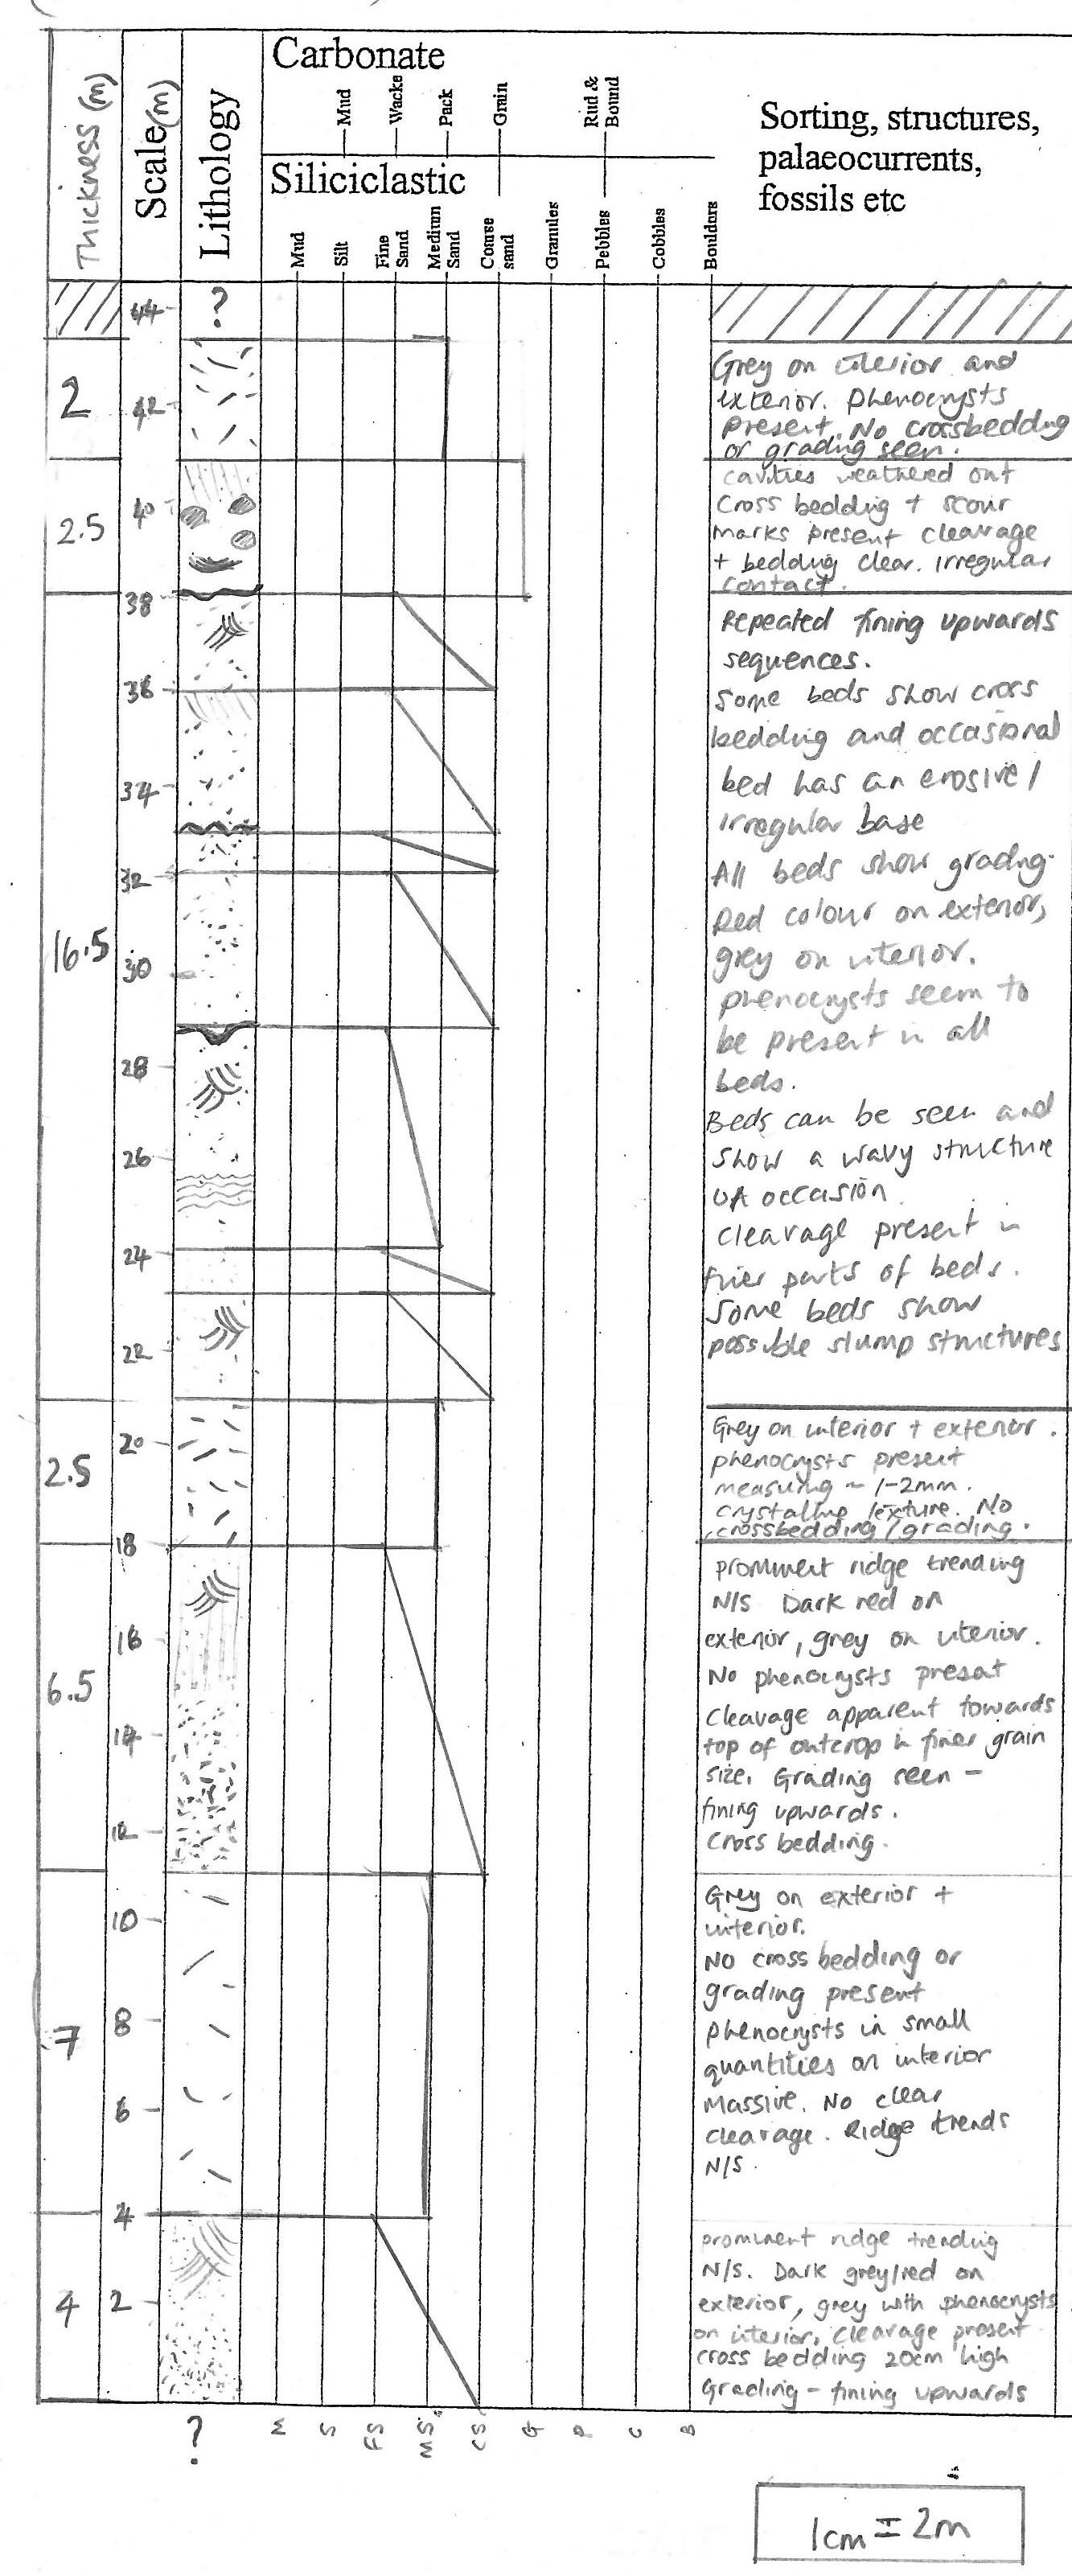 Carbonate
Mud
Wacke
Pack
Grain
Rud &
Bound
Thickness (m)
Scale(m)
Lithology
Sorting, structures,
palaeocurrents,
fossils etc
Siliciclastic
Mud
Silt
Fine
Sand
Medium
Sand
Coarse
sand
Granules
Pebbles
Cobbles
Boulders
44
?
2
42
Grey on interior and
exterior. Phenocrysts
present. No crossbedding
or grading seen.
2.5
40
cavities weathered out
Cross bedding + scour
marks present cleavage
+ bedding clear. Irregular
contact.
16.5
38
36
34
32
30
28
26
24
22
Repeated fining upwards
sequences.
Some beds show cross
bedding and occasional
bed has an erosive/
irregular base
All beds show grading.
Red colour on exterior,
grey on interior.
phenocrysts seem to
be present in all
beds.
Beds can be seen and
show a wavy structure
on occasion
cleavage present in
finer parts of beds.
Some beds show
possible slump structures
2.5
20
18
Grey on interior + exterior.
phenocrysts present
measuring ~ 1-2mm.
crystalline texture. No
crossbedding/grading.
6.5
16
14
12
prominent ridge trending
N/S Dark red on
exterior, grey on interior.
No phenocrysts present
Cleavage apparent towards
top of outcrop in finer grain
size. Grading seen -
fining upwards.
Cross bedding.
7
10
8
6
4
Grey on exterior +
interior.
No cross bedding or
grading present
phenocrysts in small
quantities on interior
Massive. No clear
cleavage. Ridge trends
N/S.
4
2
prominent ridge trending
N/S. Dark grey/red on
exterior, grey with phenocrysts
on interior, cleavage present
cross bedding 20cm high
Grading - fining upwards
?
M
S
FS
MS
CS
G
P
C
B
1cm = 2m